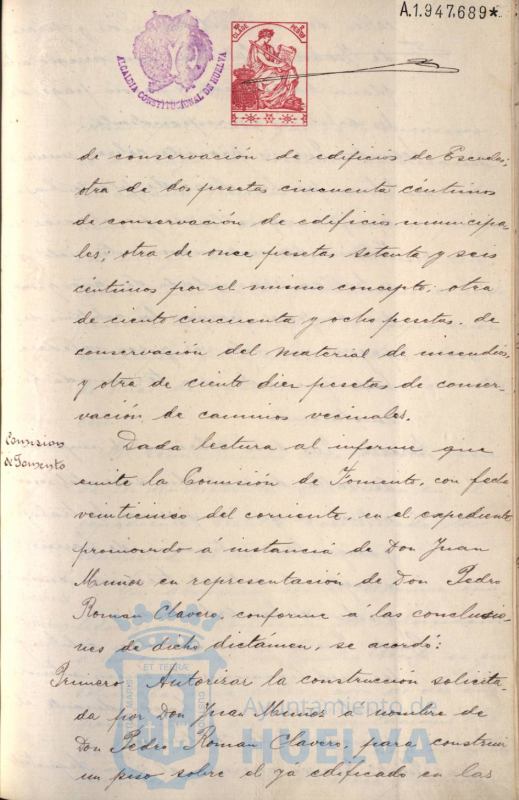 A.1.947.689*
ALCALDIA CONSTITUCIONAL DE HUELVA
de conservación de edificios de Escuelas;
otra de dos pesetas cincuenta céntimos
de conservación de edificios municipa-
les; otra de once pesetas setenta y seis
céntimos por el mismo concepto; otra
de ciento cincuenta y ocho pesetas. de
conservación del material de incendios,
y otra de ciento diez pesetas de conser-
vación de caminos vecinales.
Comision
de Fomento
Dada lectura al informe que
emite la Comisión de Fomento, con fecha
veinticinco del corriente, en el expediente
promovido á instancia de Don Juan
Muñoz en representación de Don Pedro
Roman Clavero, conforme á las conclusio-
nes de dicho dictámen, se acordó:
Primero: Autorizar la construcción solicita-
da por Don Juan Muñoz á nombre de
Don Pedro Roman Clavero, para construir
un piso sobre el ya edificado en las
Ayuntamiento de
HUELVA